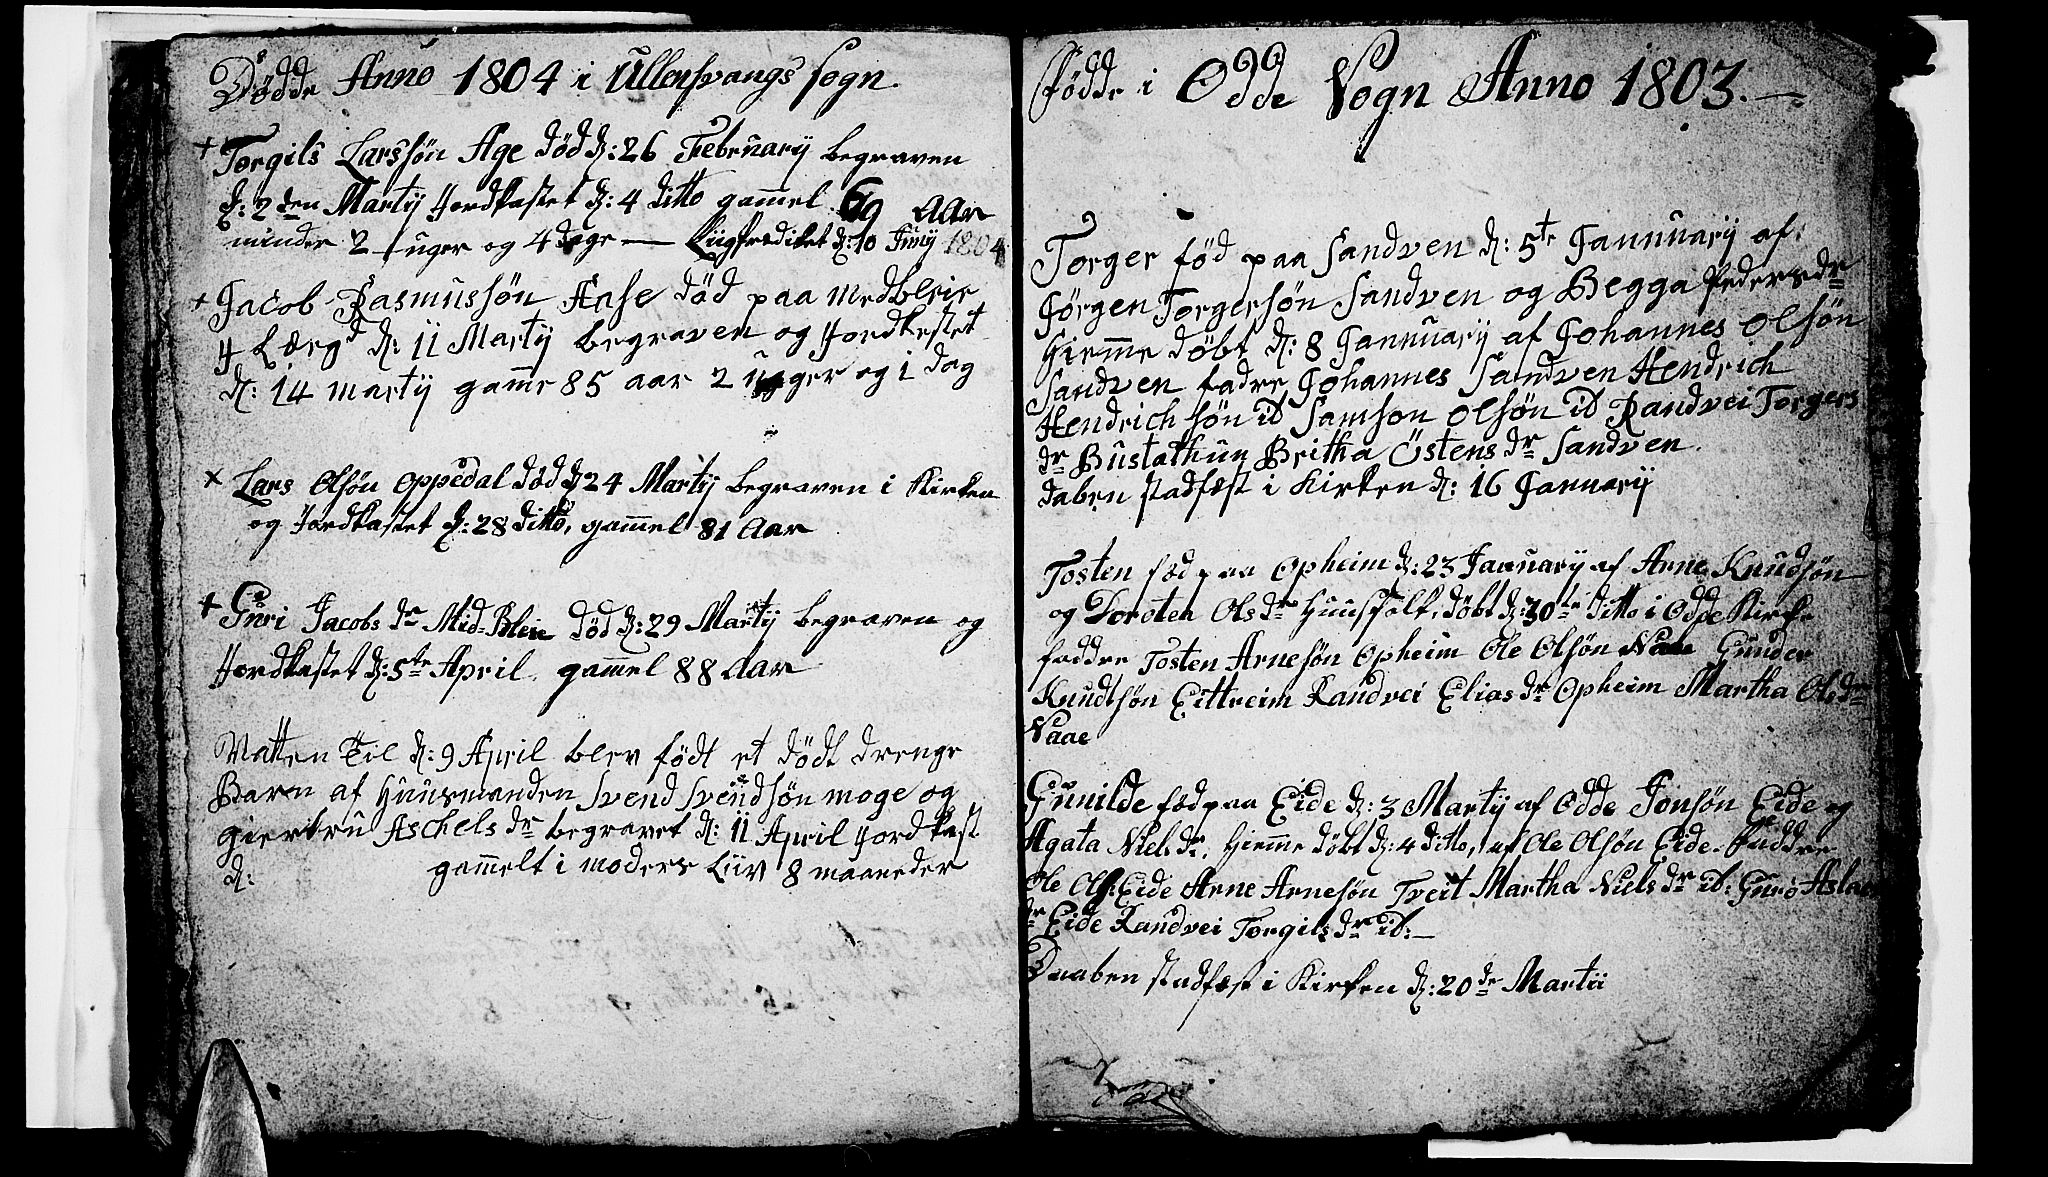 Dødde Anno 1804 i Ullensvangs sogn.
+ Torgils Larssøn Age død d: 26 Februarij begraven
d: 2den Martij Jordkastet d: 4 ditto gammel 69 Aar
minder 2 uger og 4 dage — Liigprædiket d: 10 Junij 1804
+ Jacob Rasmussøn Aase død paa Medbleie
4 Lægd d: 11 Martij begraven og Jordkastet
d: 14 martij gamme 85 aar 2 uger og 1 dag
x Lars Olsøn Oppedal død d 24 Martij begraven i Kirken
og Jordkastet d: 28 ditto, gammel 81 Aar
+ Guri Jacobs dr Mid-Bleie død d: 29 Martij begraven og
Jordkastet d: 5te April gammel 88 Aar
Natten Til d: 9 April blev født et dødt drenge
Barn af Huusmanden Svend Svendsøn moge og
giertru Aschels dr begravet d: 11 April Jordkast
d: gammelt i moders Liiv 8 maaneder
Fødde i Odde Sogn Anno 1803.—
Torger fød paa Sandven d: 5te Januuarij af
Jørgen Torgersøn Sandven og Begga Pedersdr
Hiemme døbt d: 8 Januuarij af Johannes Olsøn
Sandven fadre Johannes Sandven Hendrich
Hendrichsøn ib Samson Olsøn ib Randvei Torgers
dr Bustathun Britha Östens dr Sandven.
daben stadfæst i Kirken d: 16 Januarij
Tosten fød paa Opheim d: 23 Januarij af Arne Knudsøn
og Torsten Ols dr Huusfolk, døbt d: 30te ditto i Odde Kirke
faddre Tosten Arnesøn Opheim Ole Olsøn Naae Gunder
Knudtsøn Eittreim Randvei Elias dr Opheim Martha Ols dr
Naae
Gunilde fød paa Eide d: 3 Martij af Odde Jonsøn Eide og
Agata Niels dr, Hiemme døbt d: 4 ditto, af Ole Olsøn Eide. Faddre
Ole Ols: Eide Arne Arnesøn Tveit Martha Niels dr ib: Guro Aslac
dr Eide Randvei Torgils dr ib:—
Daaben stadfæst i Kirken d: 20de Martii